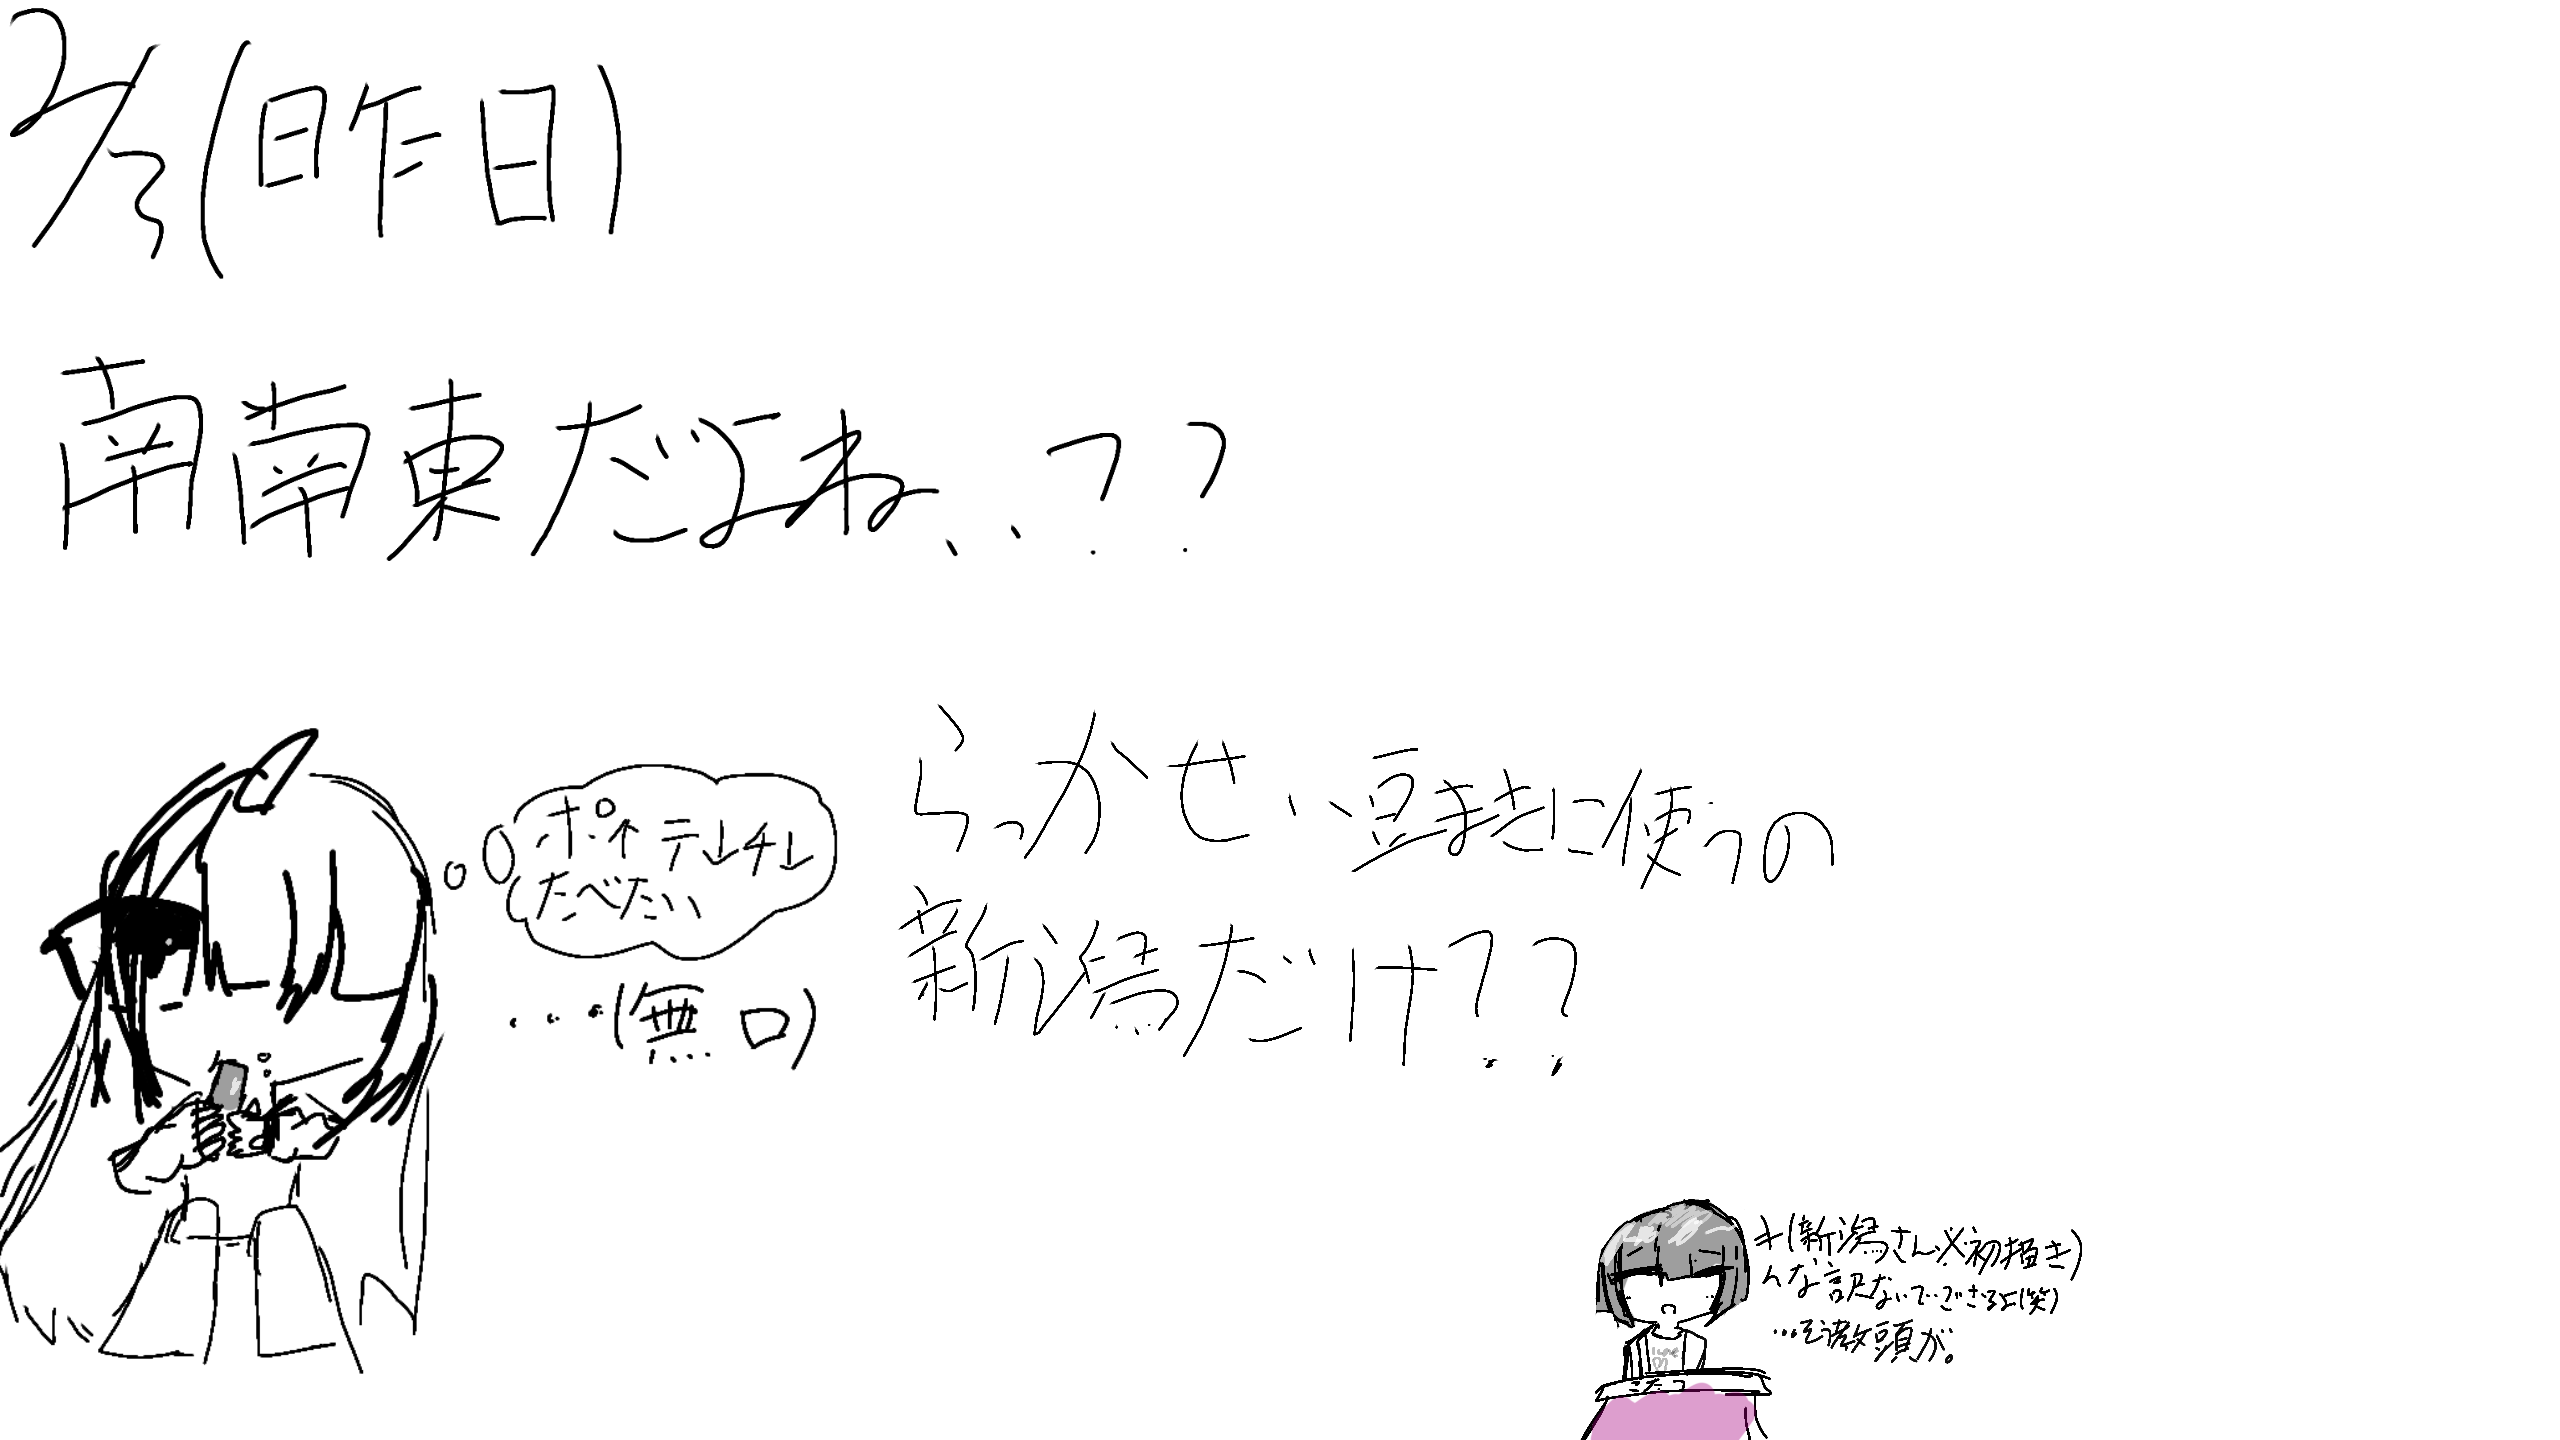 2/3(昨日)
南南東だよね、、??
ポ↑テ↓チ↓
たべたい
…(無口)
らっかせい豆まきに使うの
新潟だけ??
(新潟さん※初描き)
んな訳ないでござるよ(笑)
頭が。
こたつ